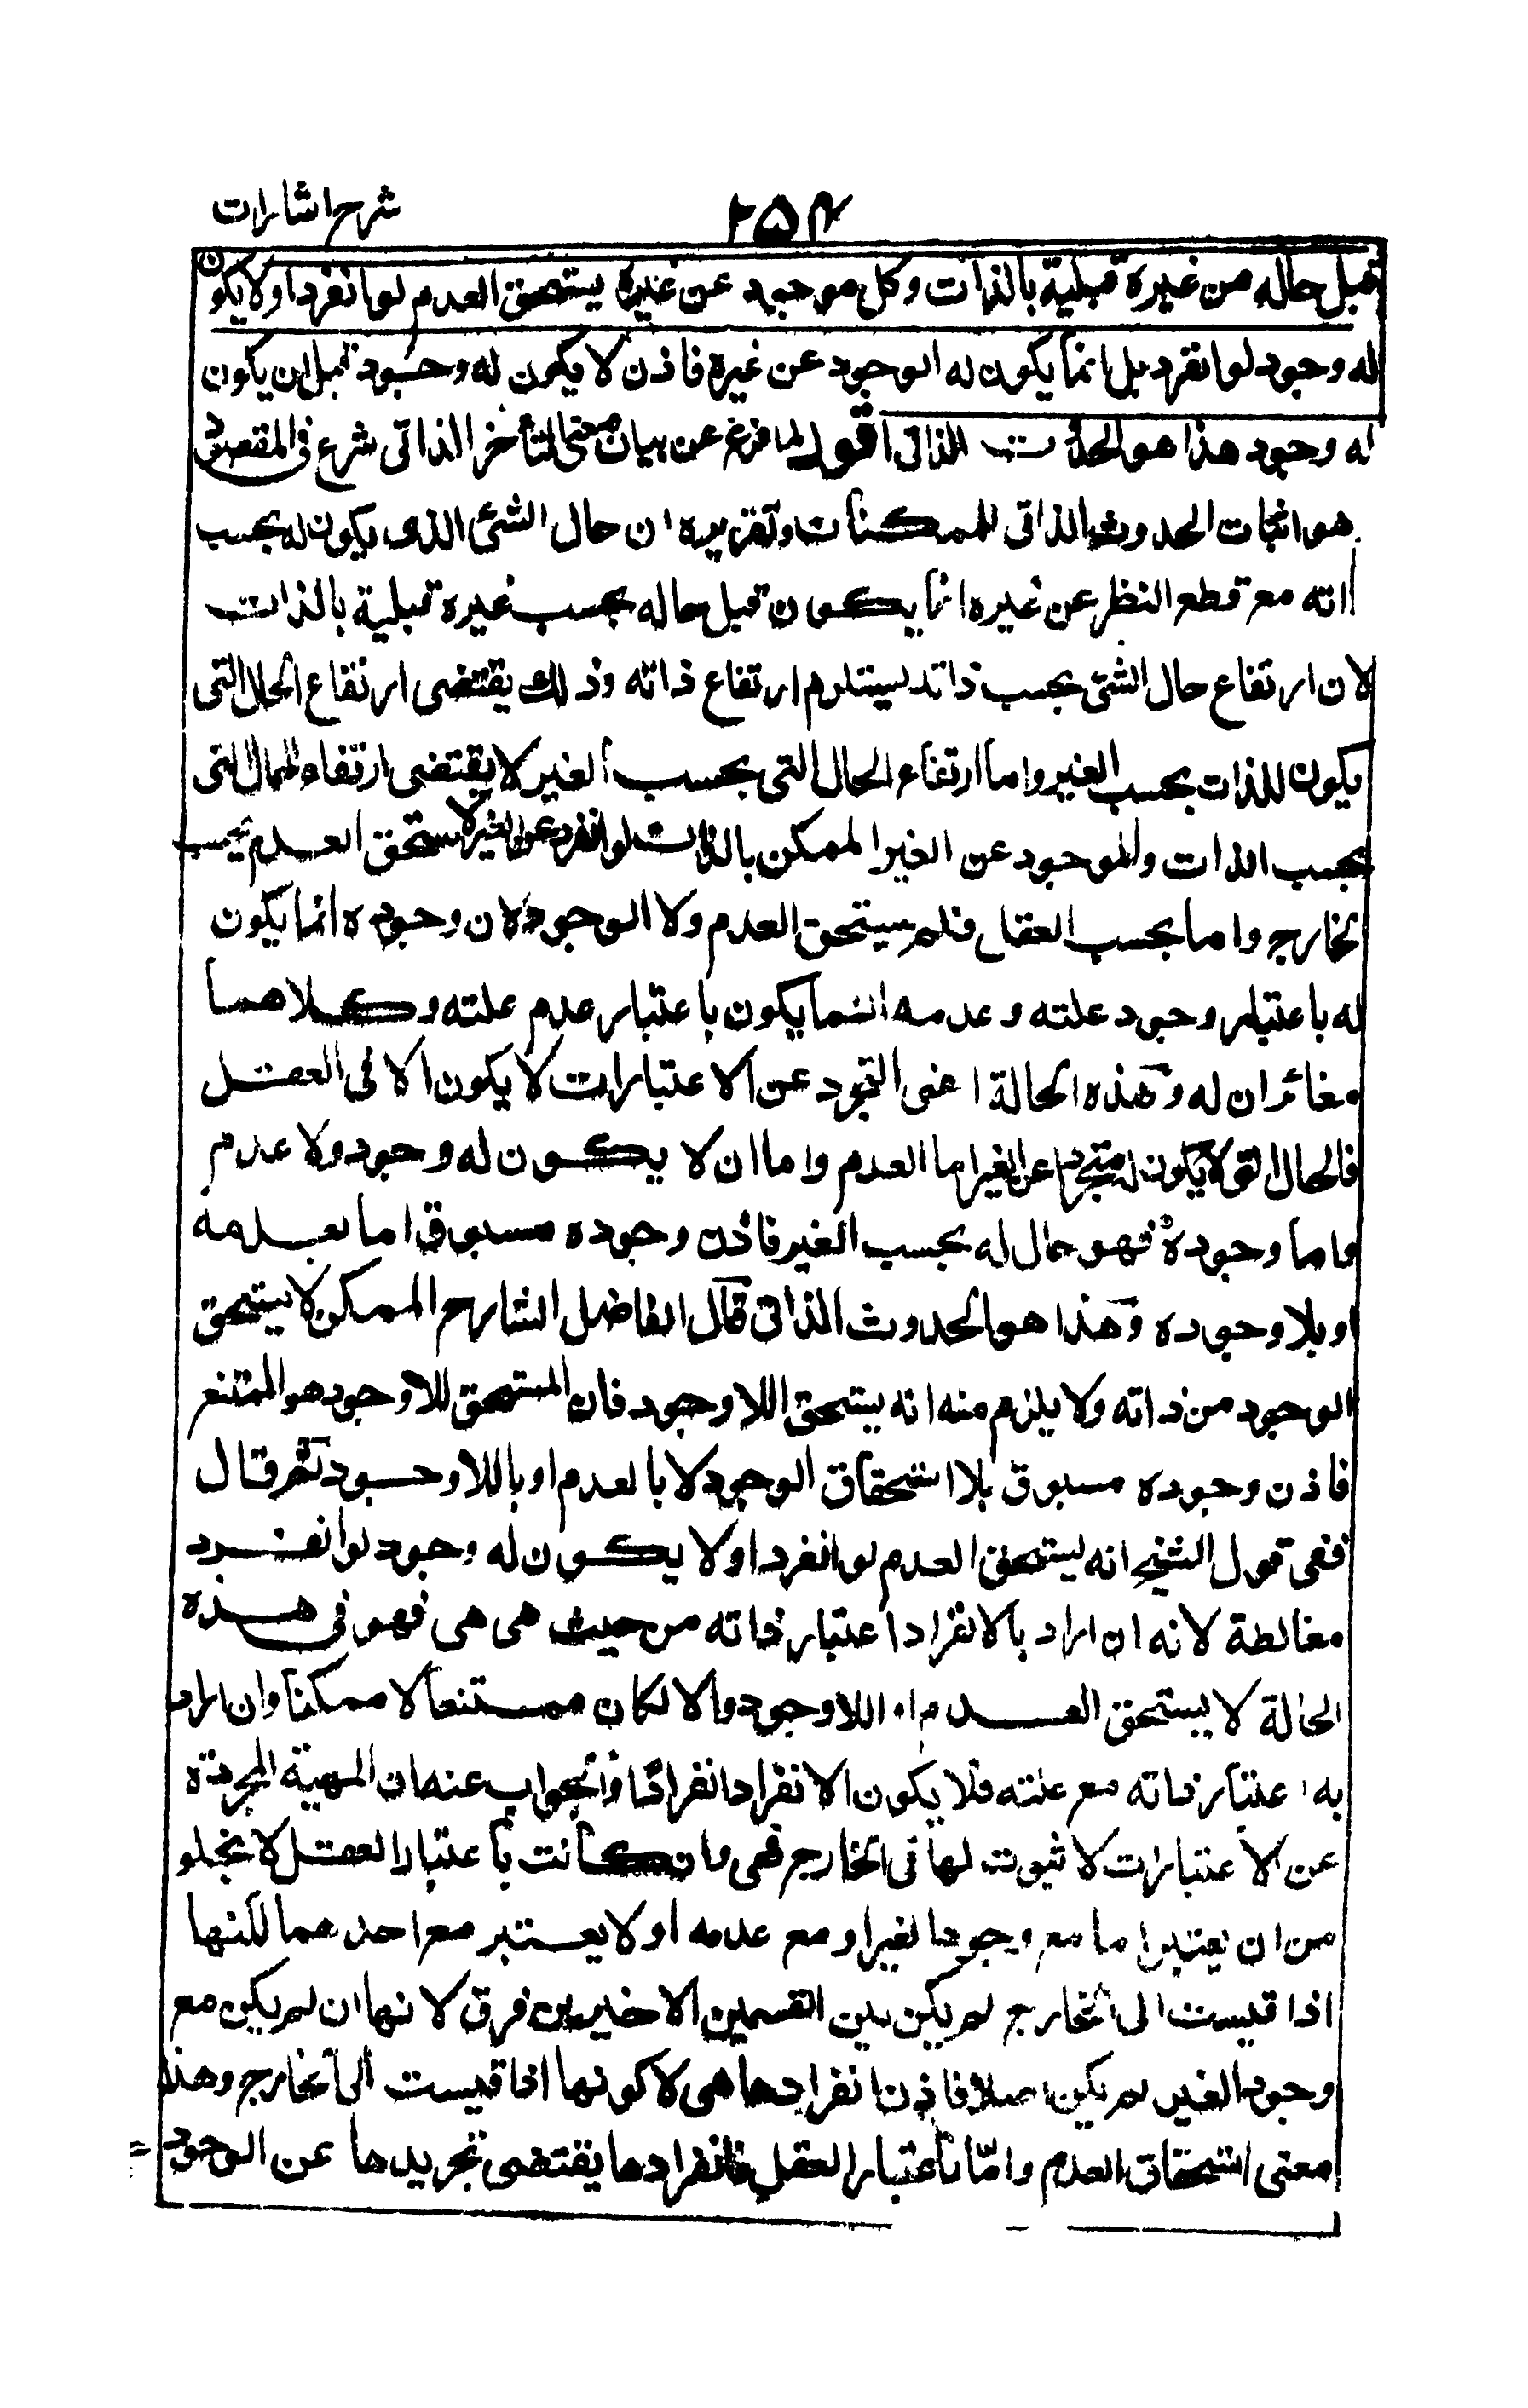 شرح اشارات
٢٥٤
قبل حاله من غيره قبلية بالذات وكل موجود عن غيره يستحق العدم لو انفرد او لا يكون
له وجود لو انفرد بل انما يكون له الوجود عن غيره فاذن لا يكون له وجود قبل ان يكون
له وجود هذا هو الحدوث الذاتى اقول لما فرغ عن بيان معنى التأخر الذاتى شرع فى المقصود و
هو اثبات الحدوث الذاتى للممكنات وتقريره ان حال الشئ الذى يكون له بحسب
ذاته مع قطع النظر عن غيره انما يكون قبل حاله بحسب غيره قبلية بالذات
لان ارتفاع حال الشئ بحسب ذاته يستلزم ارتفاع ذاته وذلك يقتضى ارتفاع الحال التى
يكون للذات بحسب الغير واما ارتفاع الحال التى بحسب الغير لا يقتضى ارتفاع الحال التى
بحسب الذات والموجود عن الغير الممكن بالذات لو انفرد عن الغير لاستحق العدم بحسب
الخارج واما بحسب العقل فلم يستحق العدم ولا الوجود لان وجوده انما يكون
له باعتبار وجود علته وعدمه انما يكون باعتبار عدم علته وكلاهما
مغائران له وهذه الحالة اعنى التجرد عن الاعتبارات لا يكون الا فى العقل
فالحال التى يكون له متجردا عن الغير اما العدم واما ان لا يكون له وجود ولا عدم
واما وجوده فهو حال له بحسب الغير فاذن وجوده مسبوق اما بعدمه
او بلا وجوده وهذا هو الحدوث الذاتى قال الفاضل الشارح الممكن لا يستحق
الوجود من ذاته ولا يلزم منه انه يستحق اللاوجود فان المستحق للاوجود هو الممتنع
فاذن وجوده مسبوق بلا استحقاق الوجود لا بالعدم او باللاوجود ثم قال
ففى قول الشيخ انه يستحق العدم لو انفرد او لا يكون له وجود لو انفرد
مغالطة لانه ان اراد بالانفراد اعتبار ذاته من حيث هى هى فهو فى هذه
الحالة لا يستحق العدم او اللاوجود والا لكان ممتنعا لا ممكنا وان اراد
به اعتبار ذاته مع علته فلا يكون الانفراد انفرادا والجواب عنه ان المهية المجردة
عن الاعتبارات لا ثبوت لها فى الخارج فهى وان كانت باعتبار العقل لا يخلو
من ان يعتبر اما مع وجود الغير او مع عدمه او لا يعتبر مع احدهما لكنها
اذا قيست الى الخارج لم يكن بين القسمين الاخيرين فرق لانها ان لم يكن مع
وجود الغير لم يكن اصلا فاذن انفرادها هى لا كونها اذا قيست الى الخارج وهذا
معنى استحقاق العدم واما باعتبار العقل فانفرادها يقتضى تجريدها عن الوجود